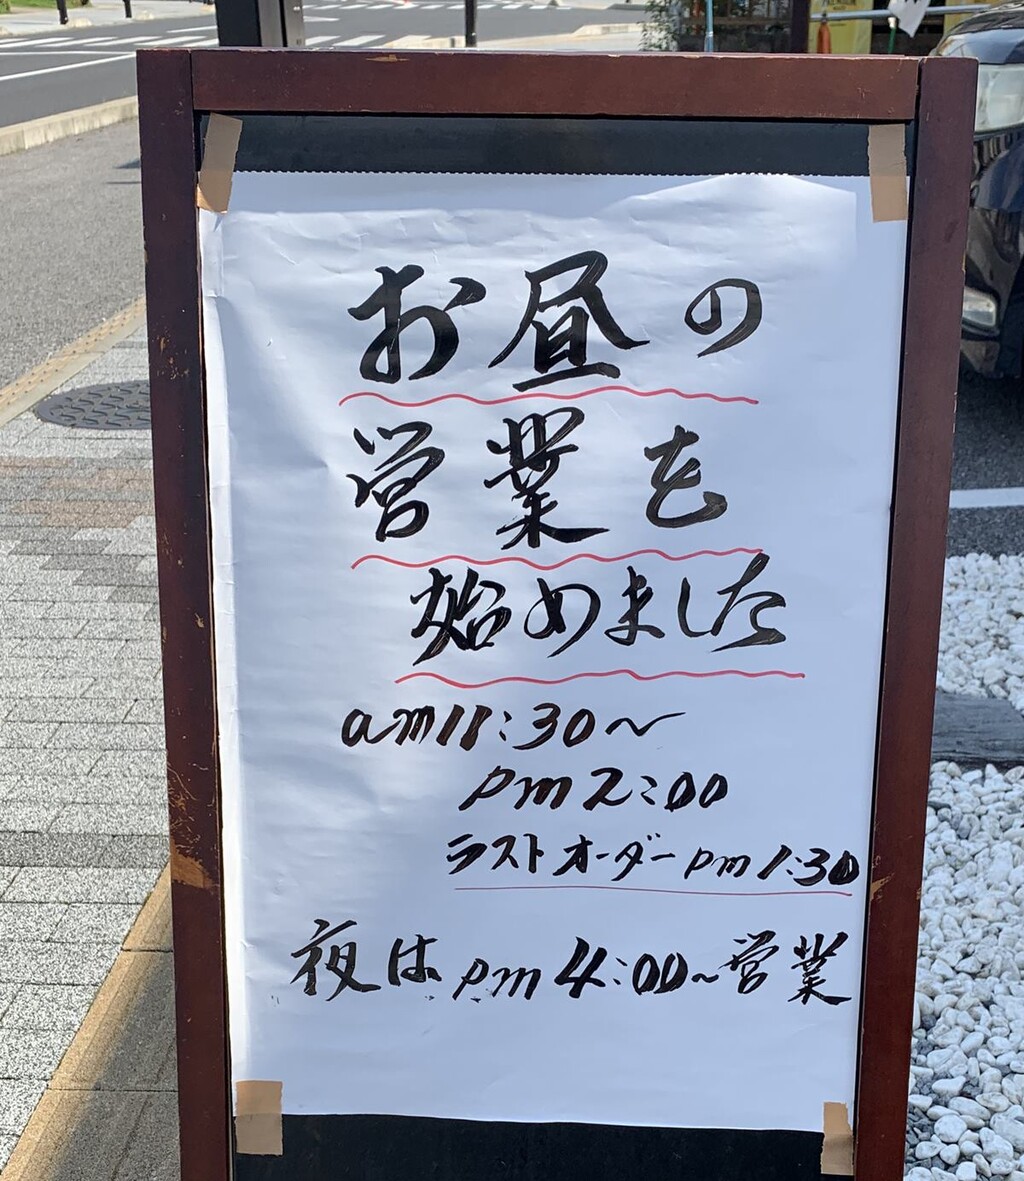 お昼の
営業を
始めました
am11:30〜
pm2:00
ラストオーダーpm1:30
夜は pm4:00〜営業